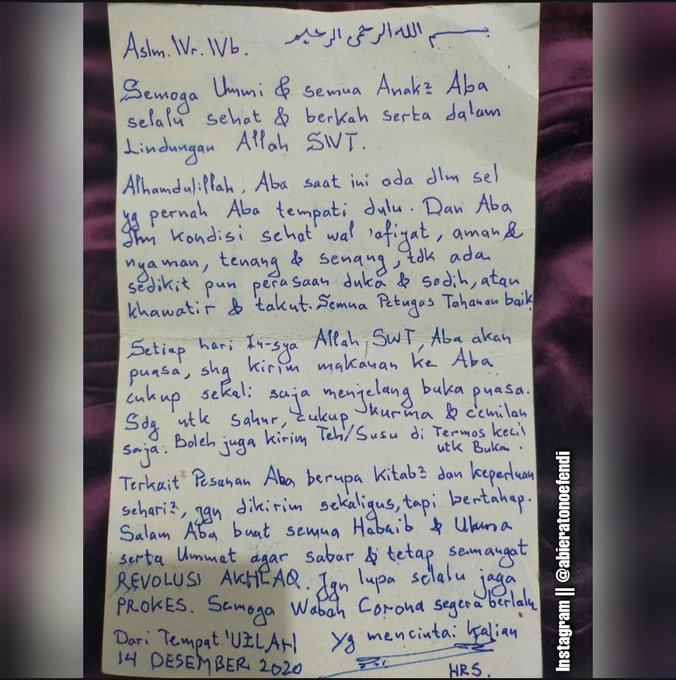 بسم الله الرحمن الرحيم
Aslm. Wr. Wb.
Semoga Ummi & semua Anak2 Aba
selalu sehat & berkah serta dalam
Lindungan Allah SWT.
Alhamdulillah, Aba saat ini ada dlm sel
yg pernah Aba tempati dulu. Dan Aba
dlm kondisi sehat wal 'afiyat, aman &
nyaman, tenang & senang, tdk ada
sedikit pun perasaan duka & sedih, atau
khawatir & takut. Semua Petugas Tahanan baik
Setiap hari In-sya Allah SWT, Aba akan
puasa, shg kirim makanan ke Aba
cukup sekali saja menjelang buka puasa.
Sdg utk Sahur, cukup kurma & cemilan
saja. Boleh juga kirim Teh/Susu di Termos kecil
utk Buka.
Terkait Pesanan Aba berupa kitab2 dan keperluan
sehari2, jgn dikirim sekaligus, tapi bertahap.
Salam Aba buat semua Habaib & Ulama
serta Ummat agar sabar & tetap semangat
REVOLUSI AKHLAQ. Jgn lupa selalu jaga
PROKES. Semoga Wabah Corona segera berlalu
Dari Tempat 'UZLAH
14 DESEMBER 2020
Yg mencintai Kalian
HRS.
Instagram || @abieratonoefendi